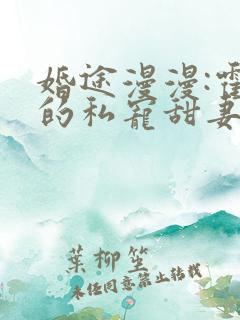 婚途漫漫:霍
的私宠甜妻
葉柳笙
未经同意禁止转载